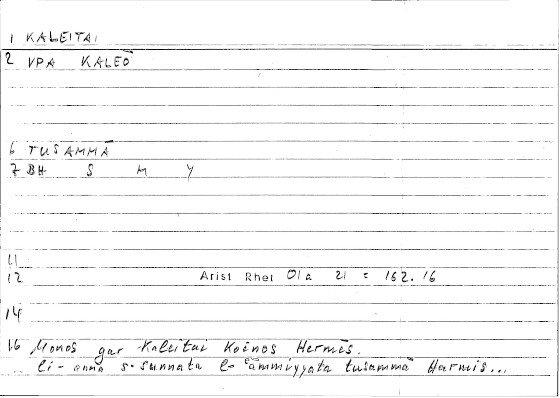 1 KALEITAI
2 VPA KALEŌ
6 TUSAMMĀ
7 BH S M Y
11
12 Arist Rhet 01a 21 = 162.16
14
16 Monos gar Kaleitai Koinos Hermēs.
li-anna s-sunnata l-ʿāmmiyyata tusammā Harmis...